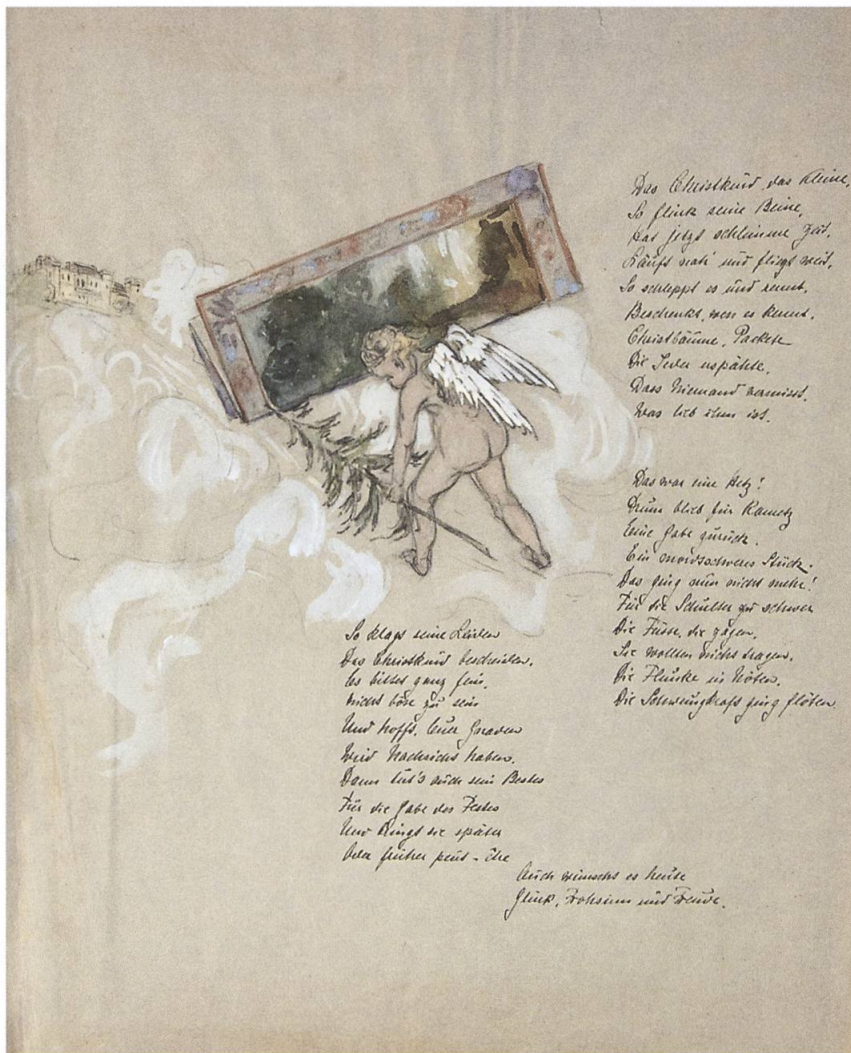 Das Christkind, das Kleine,
So flink seine Beine,
Hat jetzt schlimme Zeit.
Läuft nah' und fliegt weit,
So schleppt es und rennt,
Beschenkt, wen es kennt.
Christbäume, Packete
Die Jeder erspähte,
Dass Niemand vermisst,
Was lieb ihm ist.
Das war eine Hetz!
Drum blieb für Rametz
Eine Gabe zurück.
Ein mordsschweres Stück.
Das ging nun nicht mehr!
Für die Schulter zu schwer
Die Füsse, die zagen,
Sie wollten nicht tragen,
Die Flünke in Nöten,
Die Schwungkraft ging flöten.
So klagt seine Leiden
Das Christkind bescheiden.
Es bittet ganz fein,
Nicht böse zu sein
Und hofft, Euer Gnaden
Wird Nachsicht haben.
Dann tut's auch sein Bestes
Für die Gabe des Festes
Und bringt sie später
Oder früher peut-être
Auch wünscht es heute
Glück, Frohsinn und Freude.